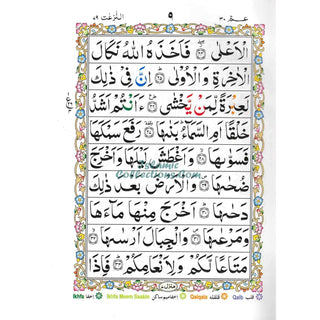 عمّ ٣٠ ٥ النّٰزعٰت ٧٩
الْاَعْلٰى ﴿٢٤﴾ فَاَخَذَهُ اللّٰهُ نَكَالَ
الْاٰخِرَةِ وَالْاُوْلٰى ﴿٢٥﴾ اِنَّ فِيْ ذٰلِكَ
لَعِبْرَةً لِّمَنْ يَّخْشٰى ﴿٢٦﴾ ءَاَنْتُمْ اَشَدُّ
خَلْقًا اَمِ السَّمَآءُ بَنٰىهَا ﴿٢٧﴾ رَفَعَ سَمْكَهَا
فَسَوّٰىهَا ﴿٢٨﴾ وَاَغْطَشَ لَيْلَهَا وَاَخْرَجَ
ضُحٰىهَا ﴿٢٩﴾ وَالْاَرْضَ بَعْدَ ذٰلِكَ
دَحٰىهَا ﴿٣٠﴾ اَخْرَجَ مِنْهَا مَآءَهَا
وَمَرْعٰىهَا ﴿٣١﴾ وَالْجِبَالَ اَرْسٰىهَا ﴿٣٢﴾
مَتَاعًا لَّكُمْ وَلِاَنْعَامِكُمْ ﴿٣٣﴾ فَاِذَا
Islamic
Collections.Com
Ikhfa اخفا Ikhfa Meem Saakin اخفا میم ساکن Qalqala قلقلہ Qalb قلب